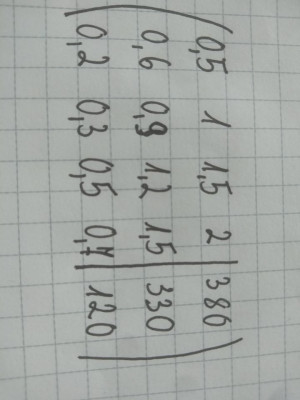 0,5 1 1,5 2 | 386
0,6 0,9 1,2 1,5 | 330
0,2 0,3 0,5 0,7 | 120